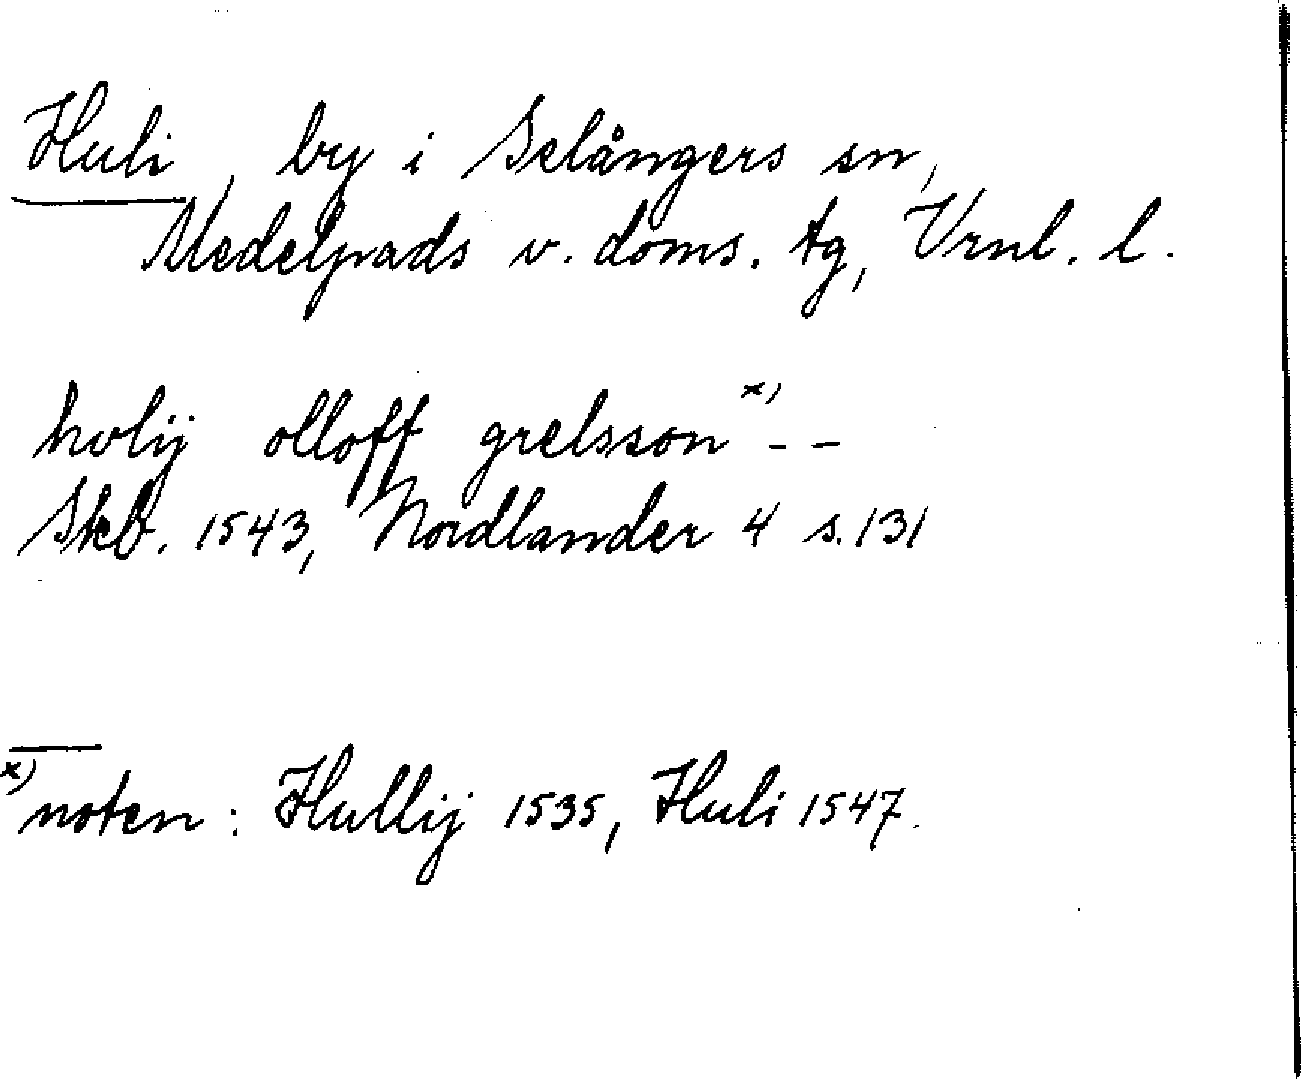 Huli, by i Selångers sn,
Medelpads v. doms. tg, Vrnl. l.
holij olloff grelsson x) - -
Skb. 1543, Nordlander 4 s. 131
x) noten: Hullij 1535, Huli 1547.